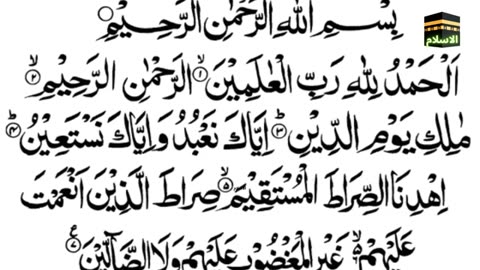 بِسْمِ اللهِ الرَّحْمٰنِ الرَّحِيْمِ
الاسلام
اَلْحَمْدُ لِلّٰهِ رَبِّ الْعٰلَمِيْنَ ۙ﴿۱﴾ الرَّحْمٰنِ الرَّحِيْمِ ۙ﴿۲﴾
مٰلِكِ يَوْمِ الدِّيْنِ ؕ﴿۳﴾ اِيَّاكَ نَعْبُدُ وَ اِيَّاكَ نَسْتَعِيْنُ ؕ﴿۴﴾
اِهْدِنَا الصِّرَاطَ الْمُسْتَقِيْمَ ۙ﴿۵﴾ صِرَاطَ الَّذِيْنَ اَنْعَمْتَ
عَلَيْهِمْ ۙ۬﴿۶﴾ غَيْرِ الْمَغْضُوْبِ عَلَيْهِمْ وَلَا الضَّآلِّيْنَ ﴿۷﴾